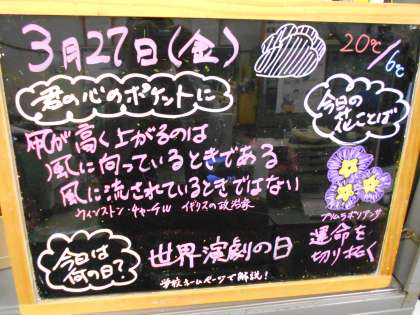 3月27日(金)
20℃/6℃
君の心のポケットに
凧が高く上がるのは
風に向っているときである
風に流されているときではない
ウィンストン・チャーチル イギリスの政治家
今日の
花ことば
プリムラポリアンサ
運命を
切り拓く
今日は
何の日?
世界演劇の日
学校ホームページで解説!